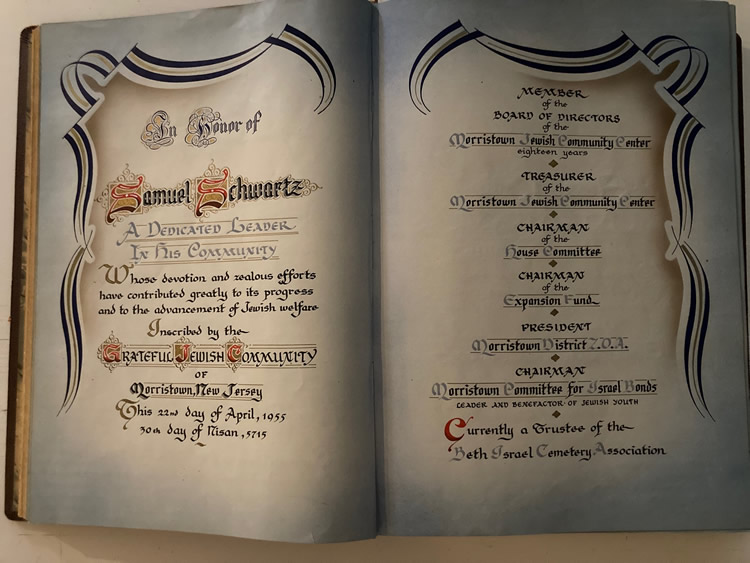 In Honor of
Samuel Schwartz
A Dedicated Leader
In His Community
Whose devotion and zealous efforts
have contributed greatly to its progress
and to the advancement of Jewish welfare
Inscribed by the
Grateful Jewish Community
OF
Morristown, New Jersey
This 22nd day of April, 1955
30th day of Nisan, 5715
MEMBER
of the
BOARD OF DIRECTORS
of the
Morristown Jewish Community Center
eighteen years
TREASURER
of the
Morristown Jewish Community Center
CHAIRMAN
of the
House Committee
CHAIRMAN
of the
Expansion Fund
PRESIDENT
Morristown District Z.O.A.
CHAIRMAN
Morristown Committee for Israel Bonds
LEADER AND BENEFACTOR OF JEWISH YOUTH
Currently a Trustee of the
Beth Israel Cemetery Association